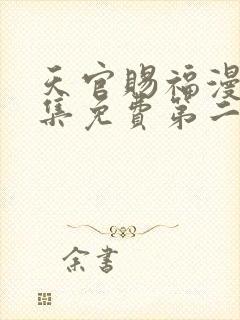 天官赐福漫
集免费第二
余书